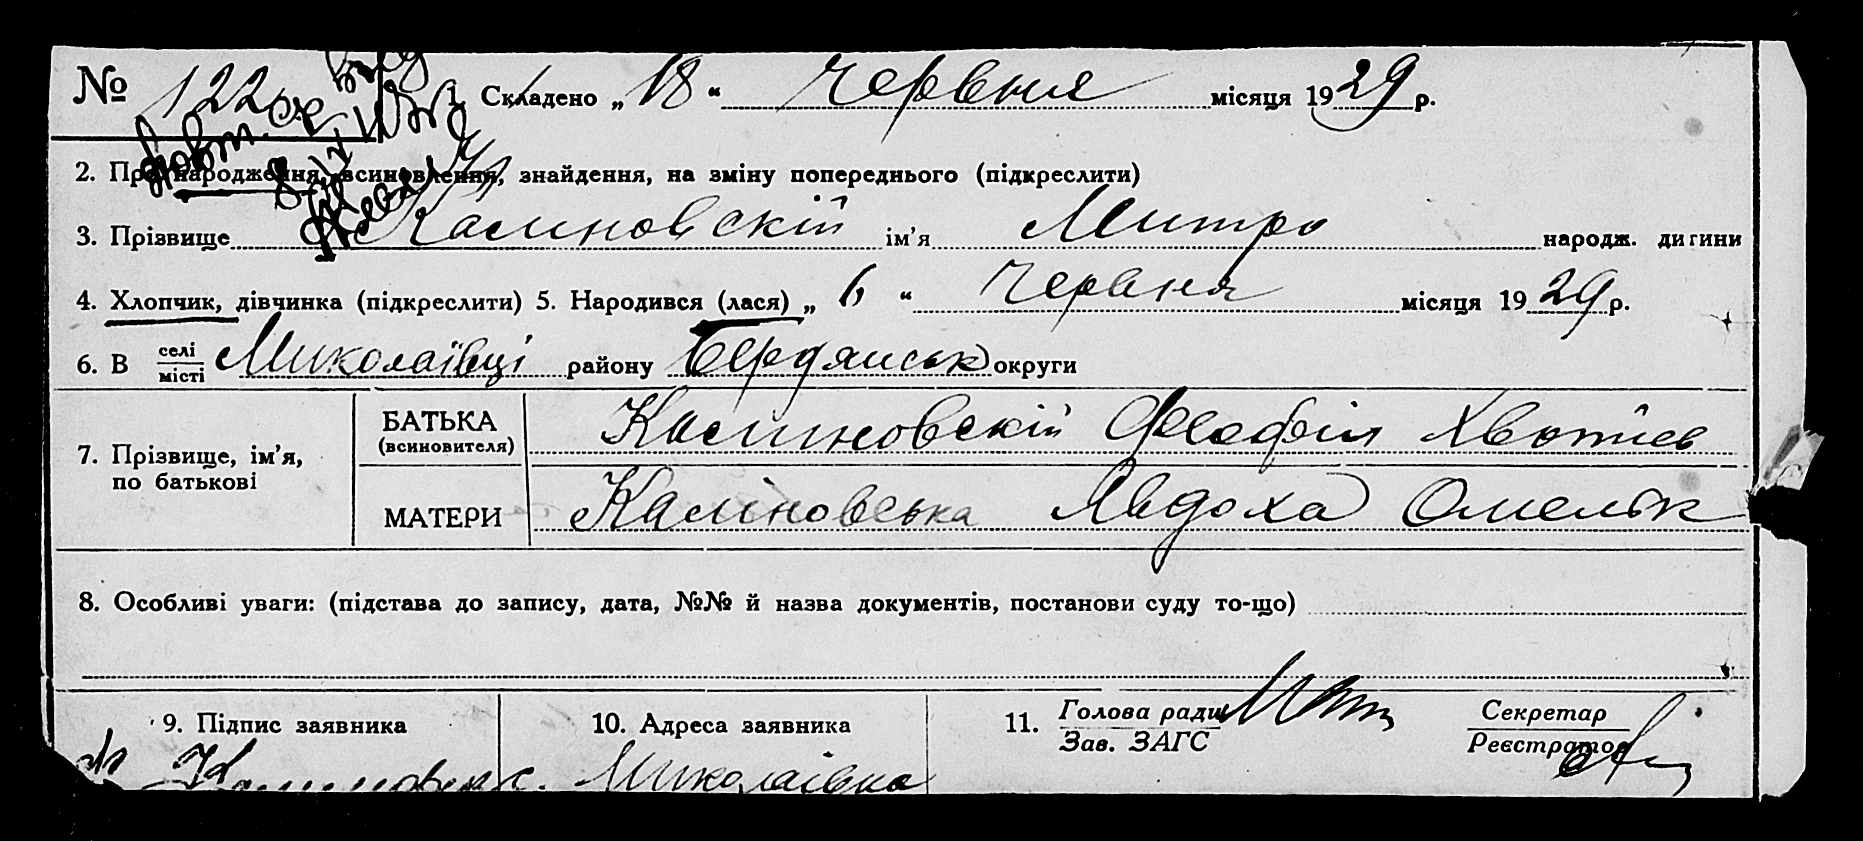 № 122 Складено „ 18 “ Червня місяця 1929 р.
2. Про народження, всиновлення, знайдення, на зміну попереднього (підкреслити)
3. Прізвище Калиновскій ім’я Митро народж. дитини
4. Хлопчик, дівчинка (підкреслити) 5. Народився (лася) „ 6 “ Червня місяця 1929 р.
6. В селі
місті Миколаївці району Бердянськ округи
7. Прізвище, ім’я,
по батькові
БАТЬКА
(всиновителя)
Калиновскій Феофіл
МАТЕРИ
Каліновська Явдоха Омельк
8. Особливі уваги: (підстава до запису, дата, №№ й назва документів, постанови суду то-що)
9. Підпис заявника
10. Адреса заявника
Миколаівка
11. Голова ради
Зав. ЗАГС
Секретар
Реєстратор